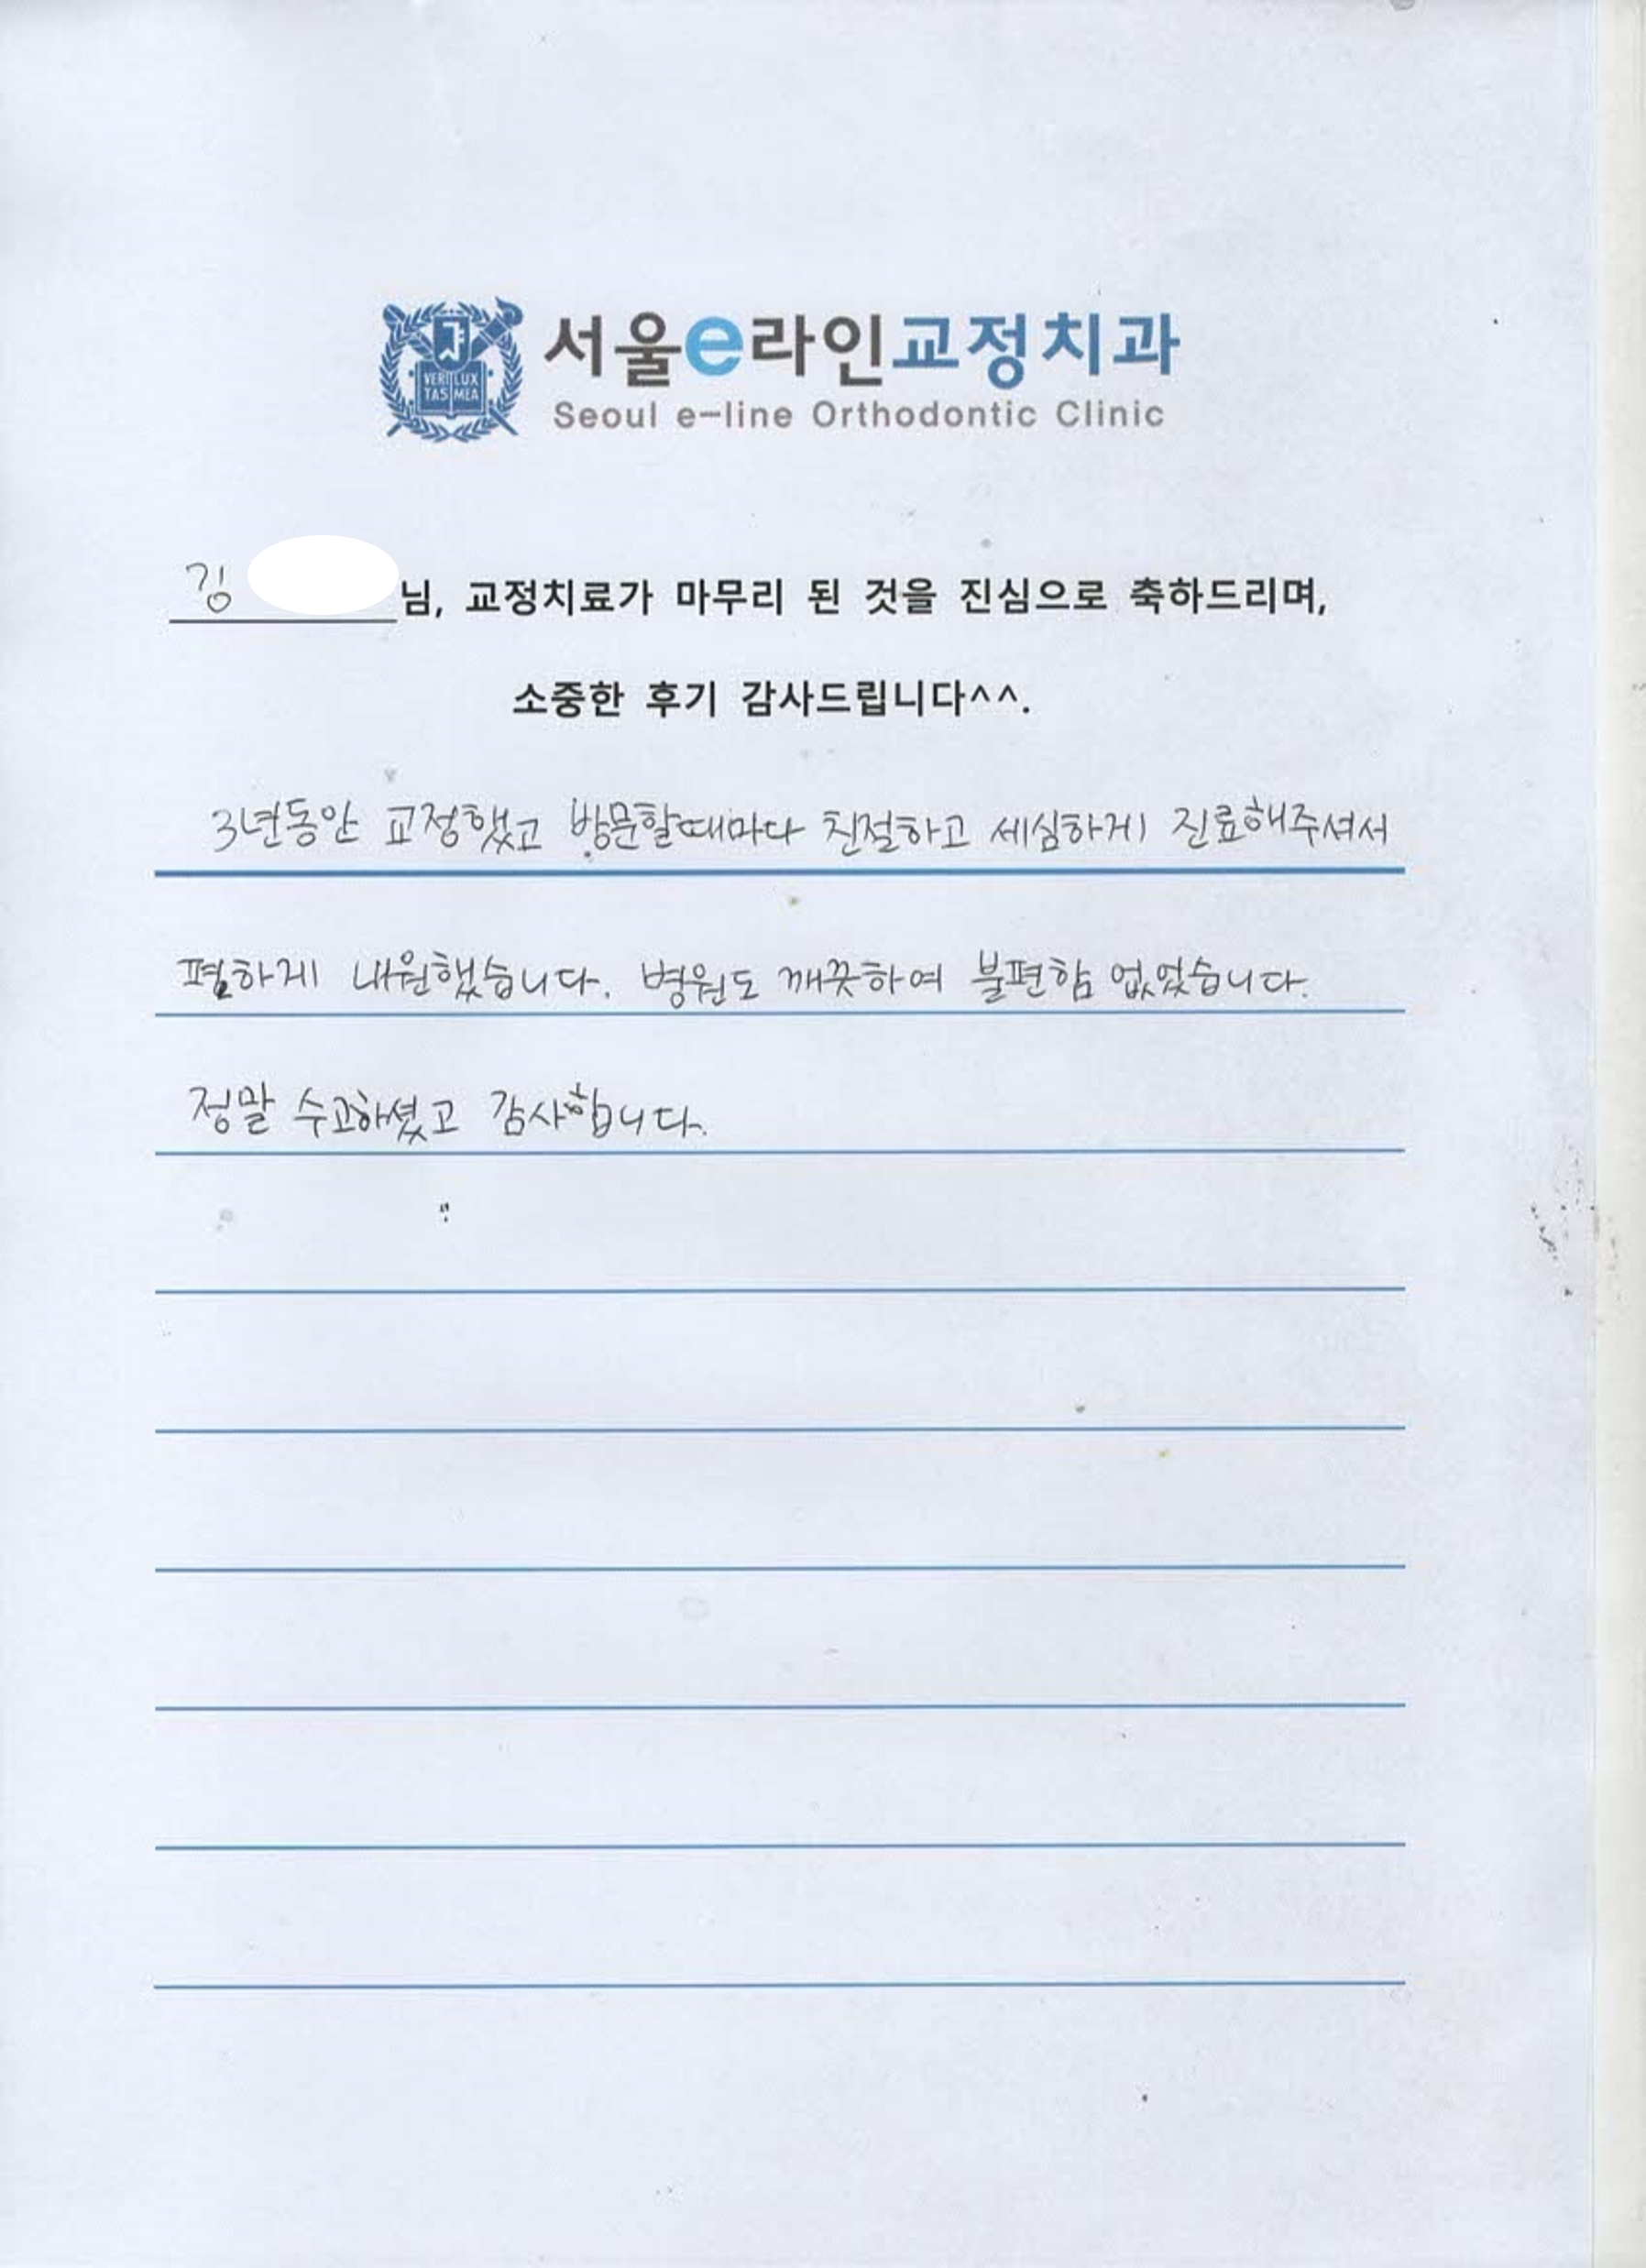 VERI LUX
TAS MEA
서울e라인교정치과
Seoul e-line Orthodontic Clinic
김 님, 교정치료가 마무리 된 것을 진심으로 축하드리며,
소중한 후기 감사드립니다^^.
3년동안 교정했고 방문할때마다 친절하고 세심하게 진료해주셔서
편하게 내원했습니다. 병원도 깨끗하여 불편함 없었습니다.
정말 수고하셨고 감사합니다.